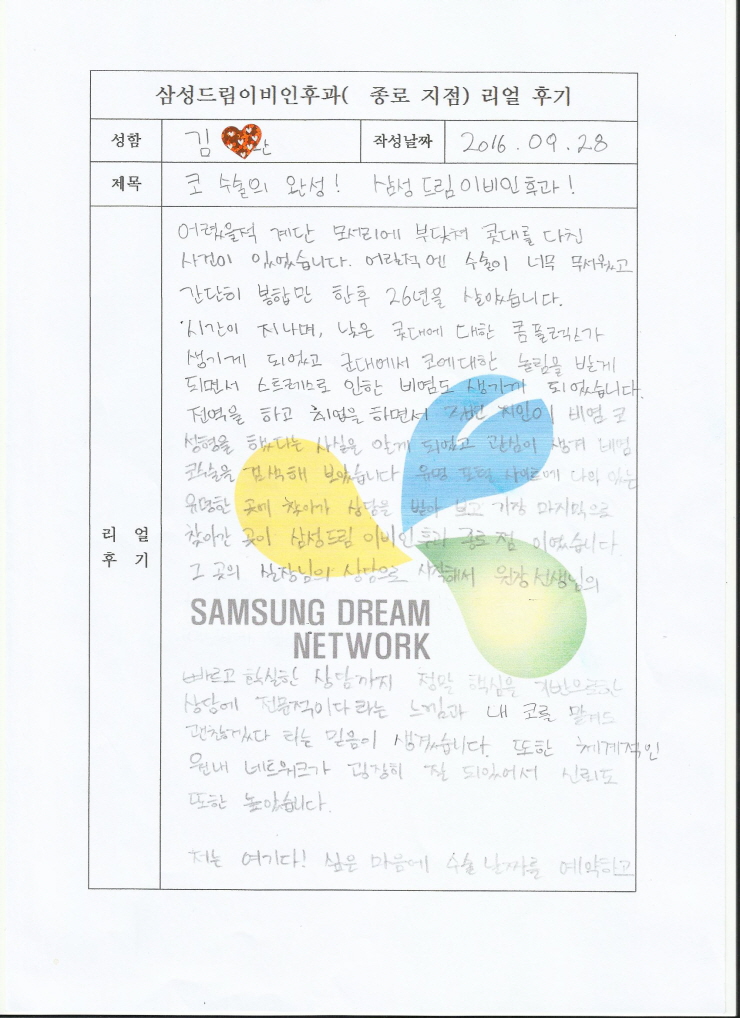 삼성드림이비인후과( 종로 지점) 리얼 후기
성함 김
작성날짜 2016.09.28
제목 코 수술의 완성! 삼성드림이비인후과!
리얼 후기
어렸을적 계단 모서리에 부딪쳐 콧대를 다친
사건이 있었습니다. 어릴적엔 수술이 너무 무서웠고
간단히 봉합만 한후 26년을 살았습니다.
시간이 지나며, 낮은 콧대에 대한 콤플렉스가
생기게 되었고 군대에서 코에대한 놀림을 받게
되면서 스트레스로 인한 비염도 생기게 되었습니다.
전역을 하고 취업을 하면서 주변 지인이 비염 코
성형을 했다는 사실을 알게 되었고 관심이 생겨 비염
코수술을 검색해 보았습니다 유명 포털 사이트에 나와 있는
유명한 곳에 찾아가 상담을 받아 보고 가장 마지막으로
찾아간 곳이 삼성드림이비인후과 종로점 이었습니다
그 곳의 실장님의 상담으로 시작해서 원장선생님의
SAMSUNG DREAM
NETWORK
빠르고 확실한 상담까지 정말 핵심을 기반으로한
상담에 전문적이다 라는 느낌과 내 코를 맡겨도
괜찮겠다 라는 믿음이 생겼습니다. 또한 체계적인
원내 네트워크가 굉장히 잘 되있어서 신뢰도
또한 높았습니다.
저는 여기다! 싶은 마음에 수술 날짜를 예약하고